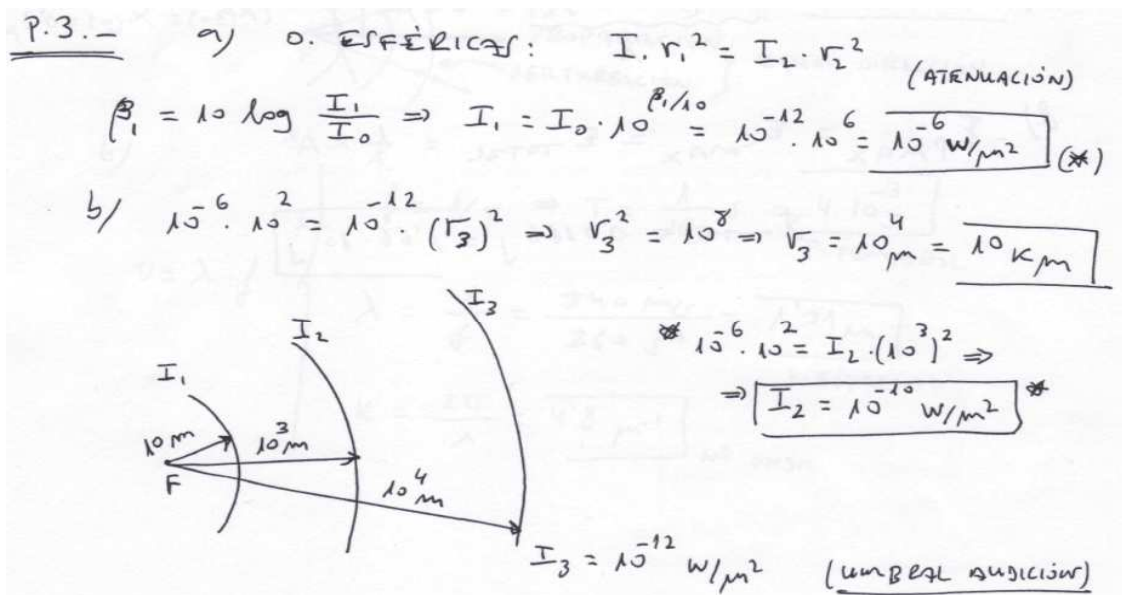 P.3.- a) O. ESFÉRICAS: I₁·r₁² = I₂·r₂² (ATENUACIÓN)
β₁ = 10 log I₁/I₀ ⇒ I₁ = I₀·10^(β₁/10) = 10⁻¹²·10⁶ = 10⁻⁶ W/m² (*)
b/ 10⁻⁶·10² = 10⁻¹²·(r₃)² ⇒ r₃² = 10⁸ ⇒ r₃ = 10⁴ m = 10 Km
* 10⁻⁶·10² = I₂·(10³)² ⇒
⇒ I₂ = 10⁻¹⁰ W/m² *
I₁
I₂
I₃
10 m
10³ m
10⁴ m
F
I₃ = 10⁻¹² W/m² (UMBRAL AUDICIÓN)